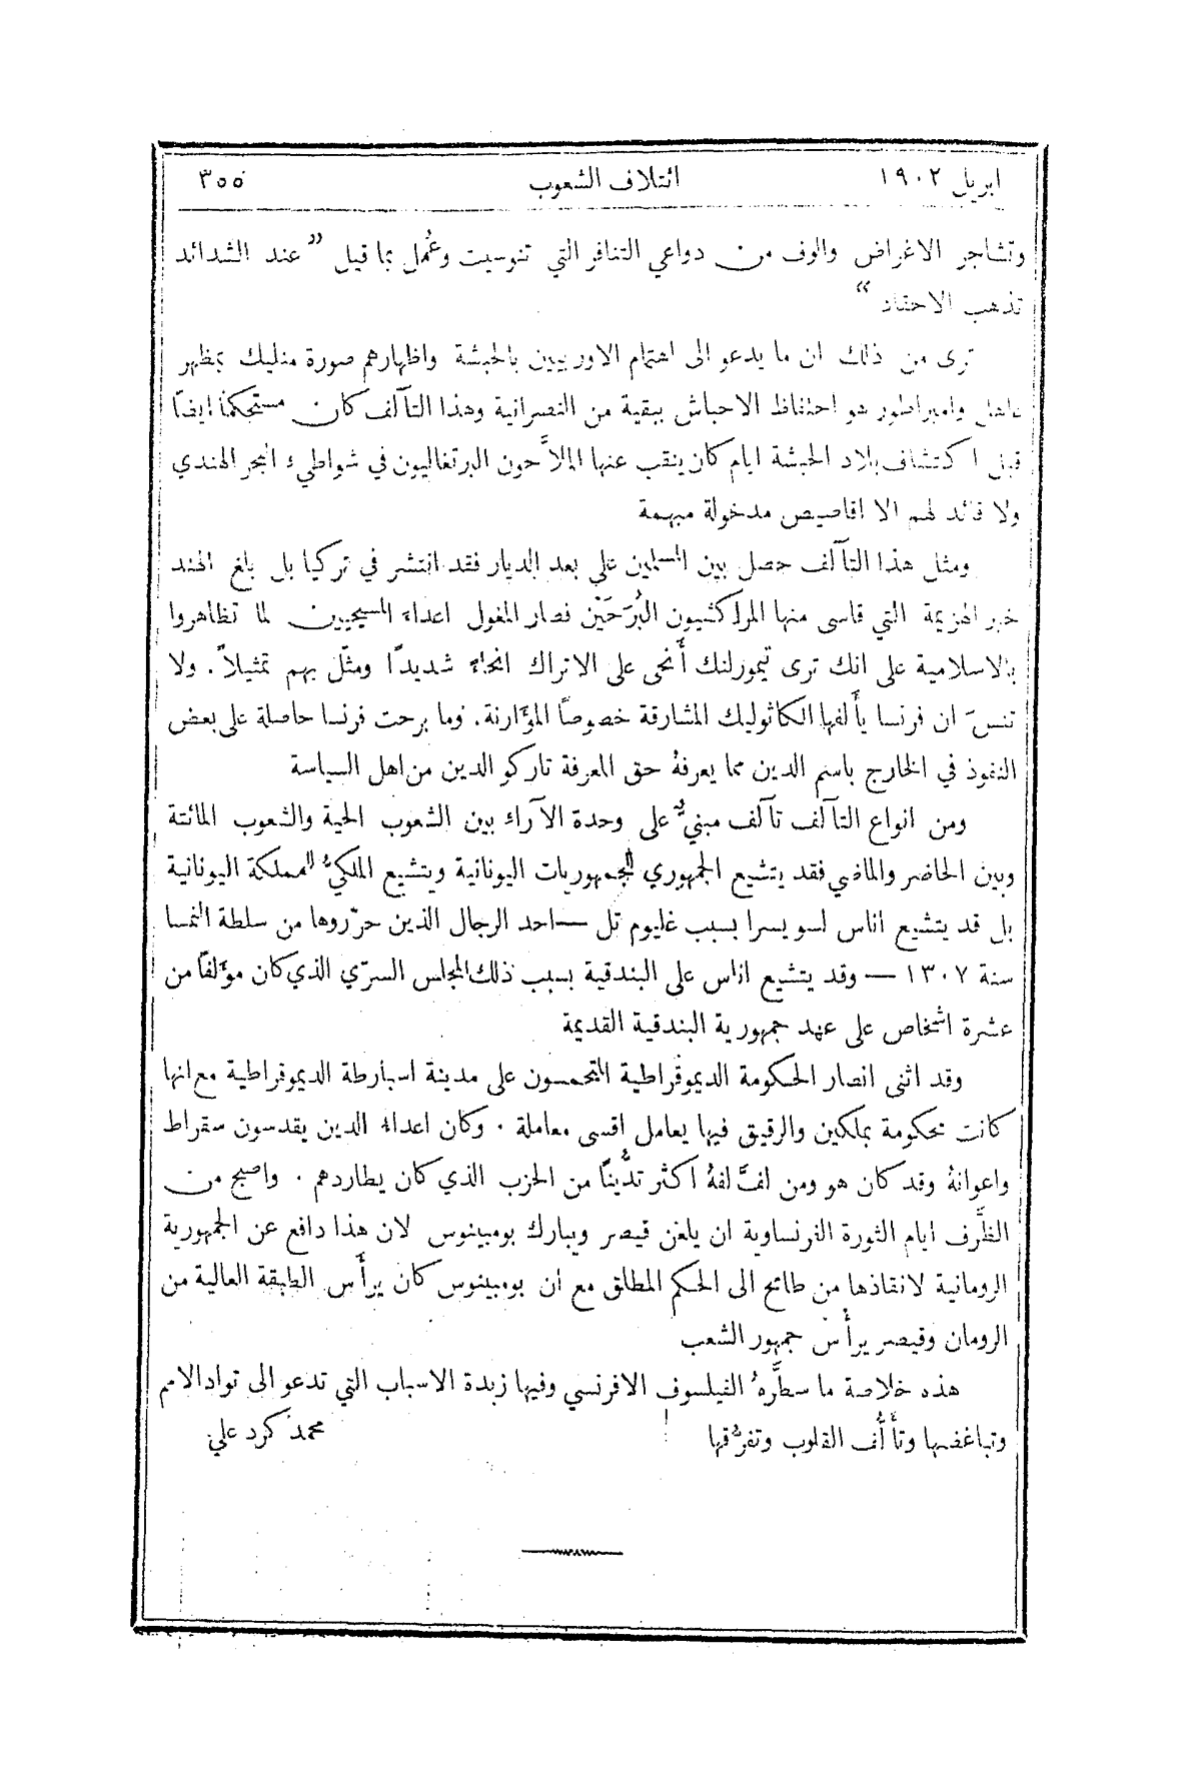 ابريل ١٩٠٢ ائتلاف الشعوب ٣٥٥
وتشاجر الاغراض والوف من دواعي التنافر التي تنوسيت وعُمل بما قيل „ عند الشدائد
تذهب الاحقاد “
ترى من ذلك ان ما يدعو الى اهتمام الاوربيين بالحبشة واظهارهم صورة منليك بمظهر
عاهل وامبراطور هو احتفاظ الاحباش ببقية من النصرانية وهذا التآلف كان مستحكماً ايضاً
قبل اكتشاف بلاد الحبشة ايام كان ينقب عنها الملاَّحون البرتغاليون في شواطىء البحر الهندي
ولا قائد لهم الا اقاصيص مدخولة مبهمة
ومثل هذا التآلف حصل بين المسلمين على بعد الديار فقد انتشر في تركيا بل بلغ الهند
خبر الهزيمة التي قاسى منها المراكشيون البُرَحَيْن فصار المغول اعداء المسيحيين لما تظاهروا
بالاسلامية على انك ترى تيمورلنك أَنحى على الاتراك انحاءً شديداً ومثّل بهم تمثيلاً . ولا
تنسَ ان فرنسا يأَلفها الكاثوليك المشارقة خصوصاً المؤارنة . وما برحت فرنسا حاصلة على بعض
النفوذ في الخارج باسم الدين مما يعرفهُ حق المعرفة تاركو الدين من اهل السياسة
ومن انواع التآلف تآلف مبنيٌّ على وحدة الآراء بين الشعوب الحية والشعوب المائتة
وبين الحاضر والماضي فقد يتشيع الجمهوري للجمهوريات اليونانية ويتشيع الملكيُّ للمملكة اليونانية
بل قد يتشيع اناس لسويسرا بسبب غليوم تل — احد الرجال الذين حرّروها من سلطة النمسا
سنة ١٣٠٧ — وقد يتشيع اناس على البندقية بسبب ذلك المجلس السرّي الذي كان مؤلفاً من
عشرة اشخاص على عهد جمهورية البندقية القديمة
وقد اثنى انصار الحكومة الديموقراطية المتحمسون على مدينة اسبارطة الديموقراطية مع انها
كانت محكومة بملكين والرقيق فيها يعامل اقسى معاملة . وكان اعداء الدين يقدسون سقراط
واعوانهُ وقد كان هو ومن لفَّ لفهُ اكثر تديُّناً من الحزب الذي كان يطاردهم . واصبح من
الظَّرف ايام الثورة الفرنساوية ان يلعن قيصر ويبارك بومبينوس لان هذا دافع عن الجمهورية
الرومانية لانقاذها من طامح الى الحكم المطلق مع ان بومبينوس كان يرأَس الطبقة العالية من
الرومان وقيصر يرأَس جمهور الشعب
هذه خلاصة ما سطَّرهُ الفيلسوف الافرنسي وفيها زبدة الاسباب التي تدعو الى تواد الامم
وتباغضها وتأَلُّف القلوب وتفرُّقها محمد كرد علي